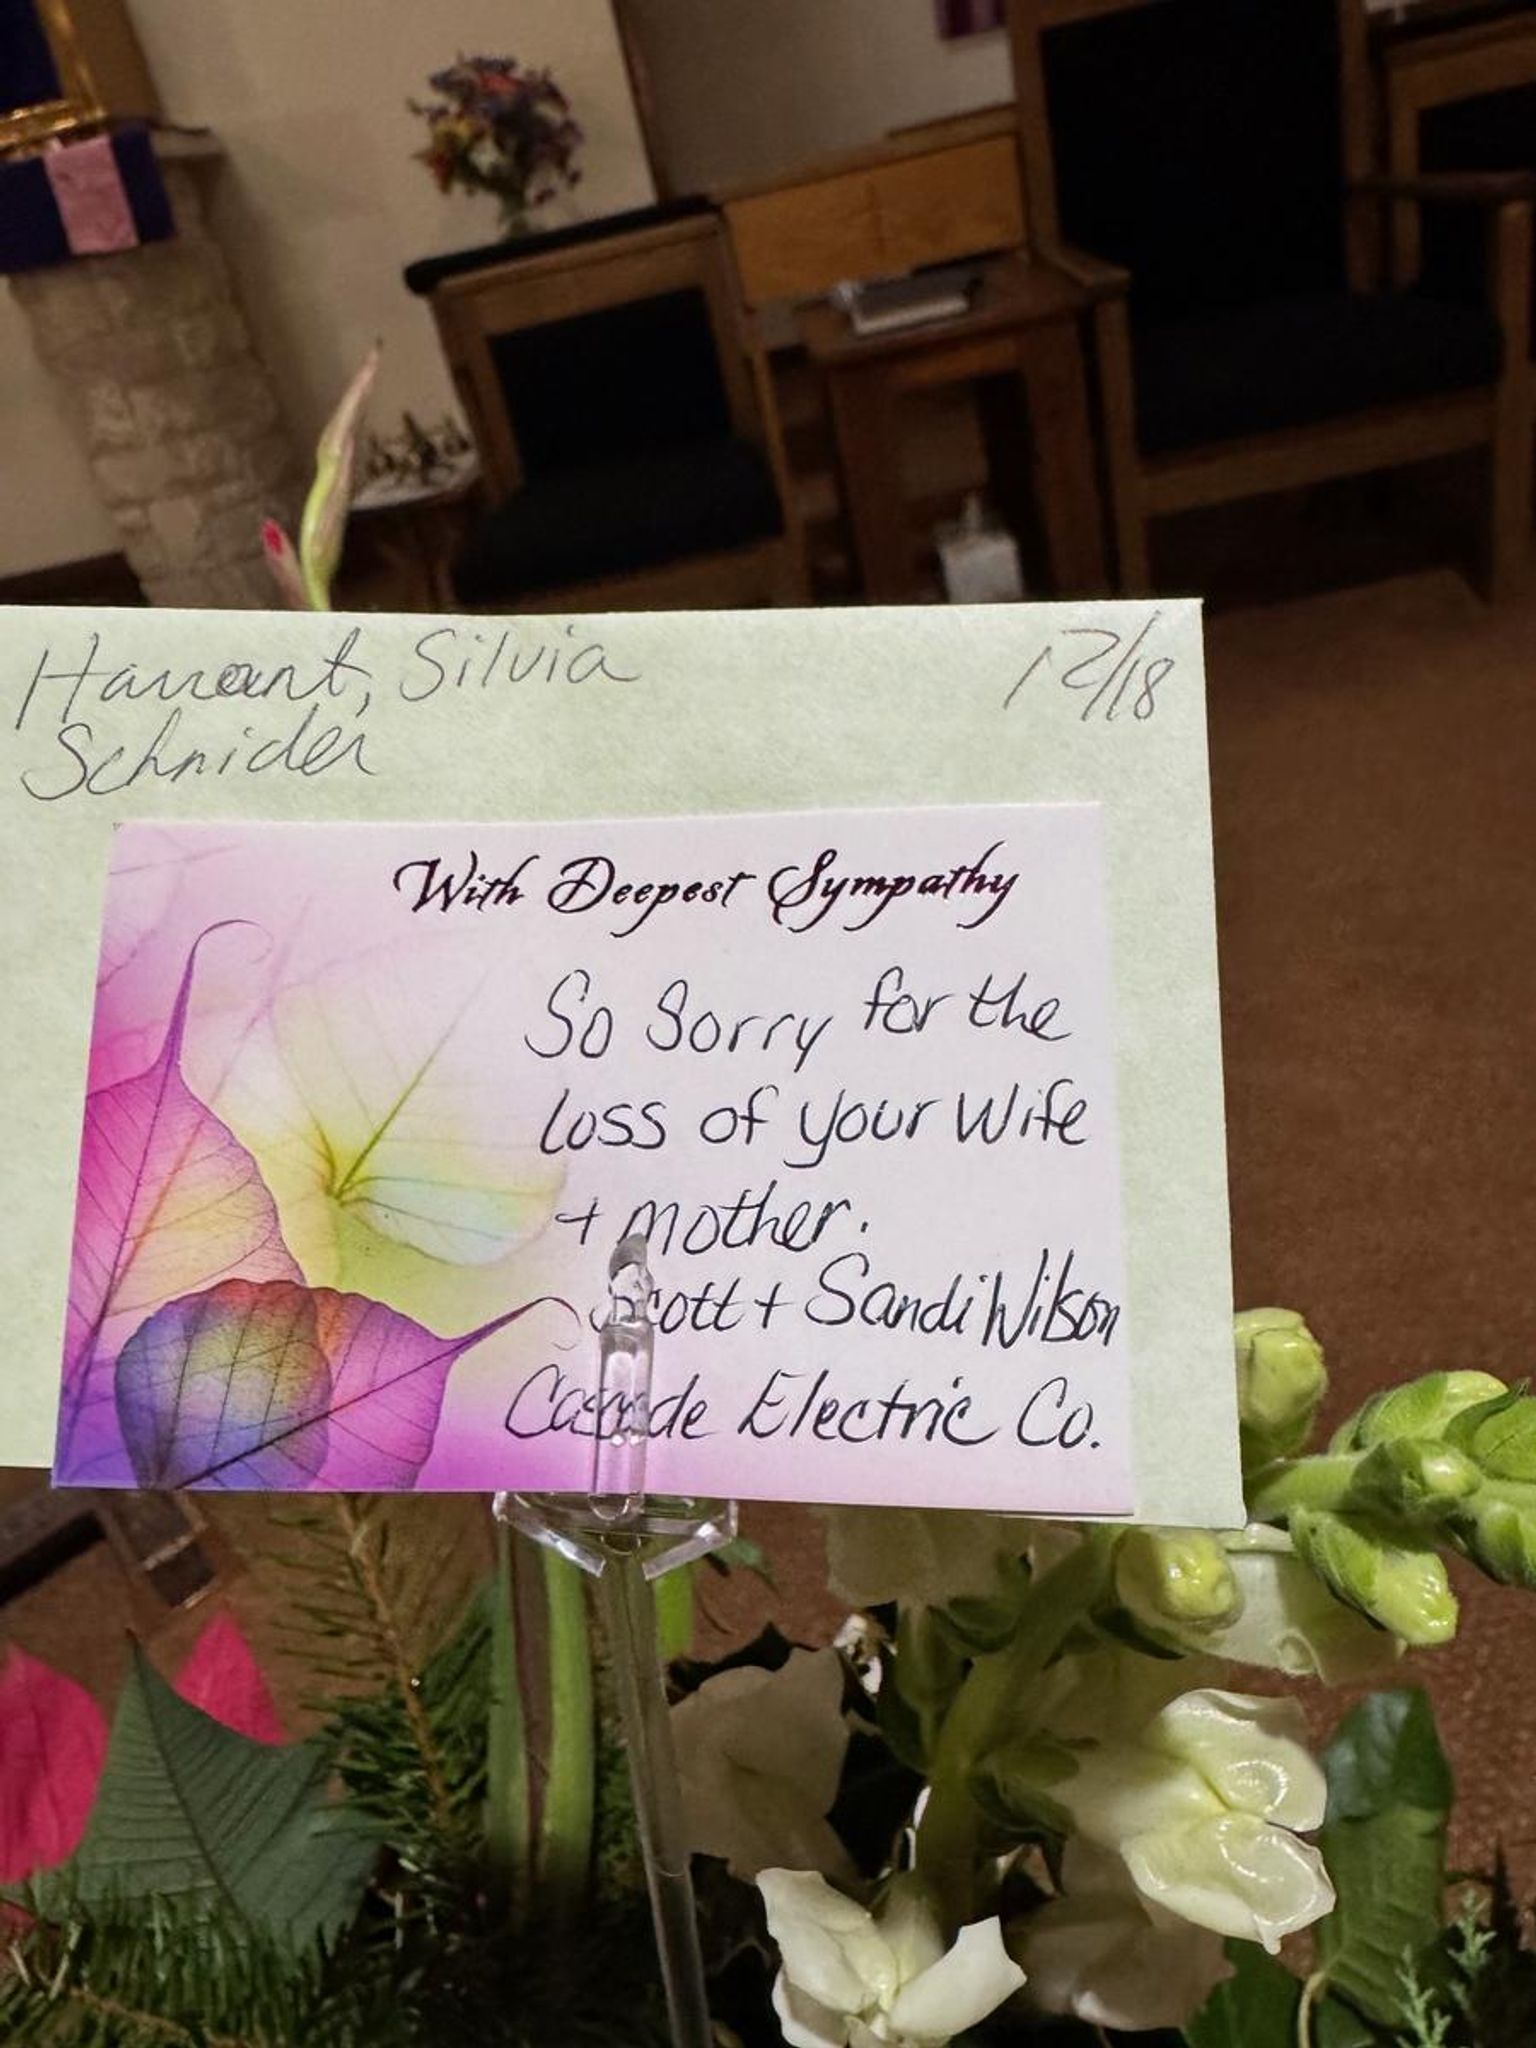 Silvia 12/18
Schnider
With Deepest Sympathy
So Sorry for the
loss of your Wife
+ mother.
Scott + Sandi Wilson
Cascade Electric Co.